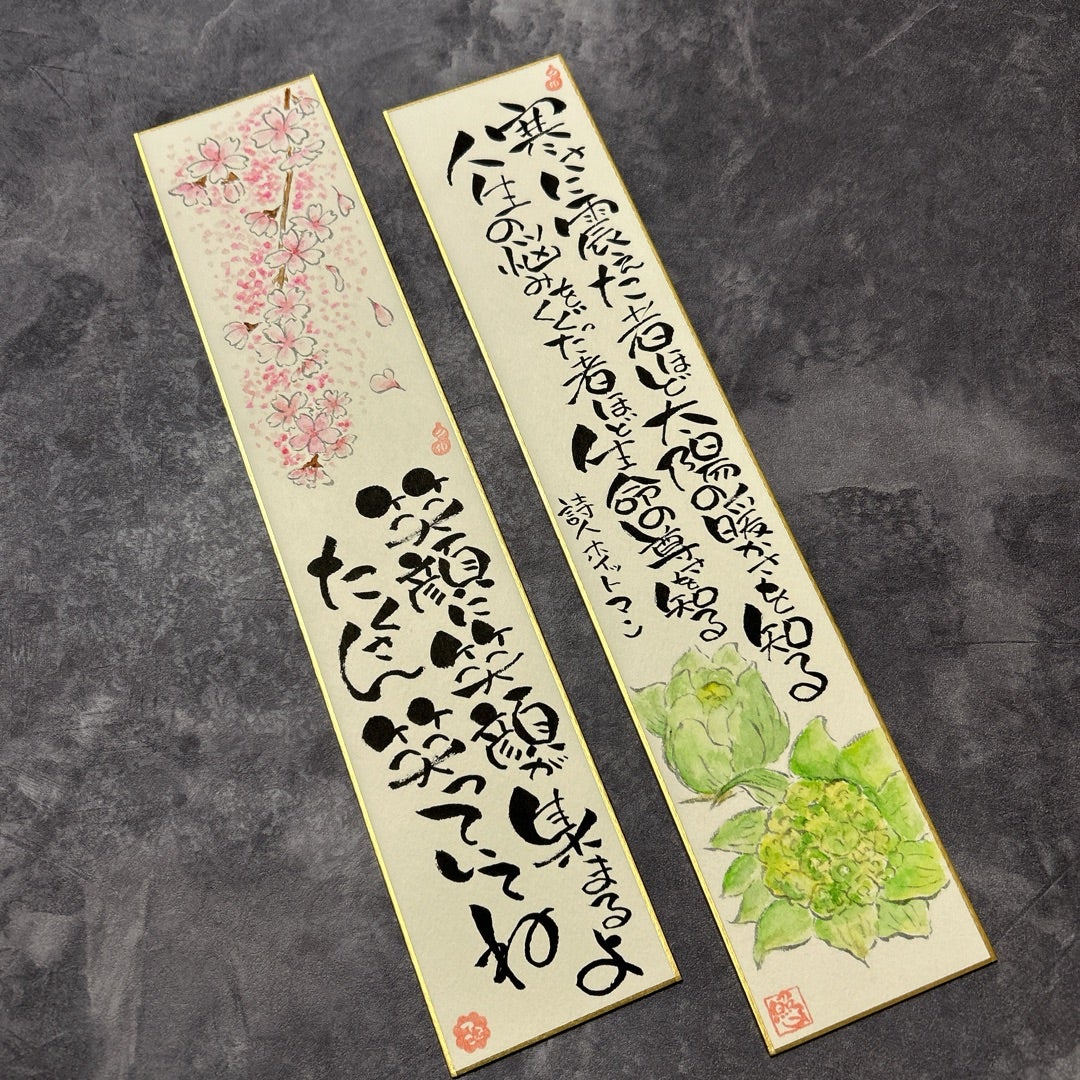 笑顔に笑顔が集まるよ
たくさん笑っていてね
寒さに震えた者ほど太陽の暖かさを知る
人生の悩みをくぐった者ほど生命の尊さを知る
詩人ホイットマン